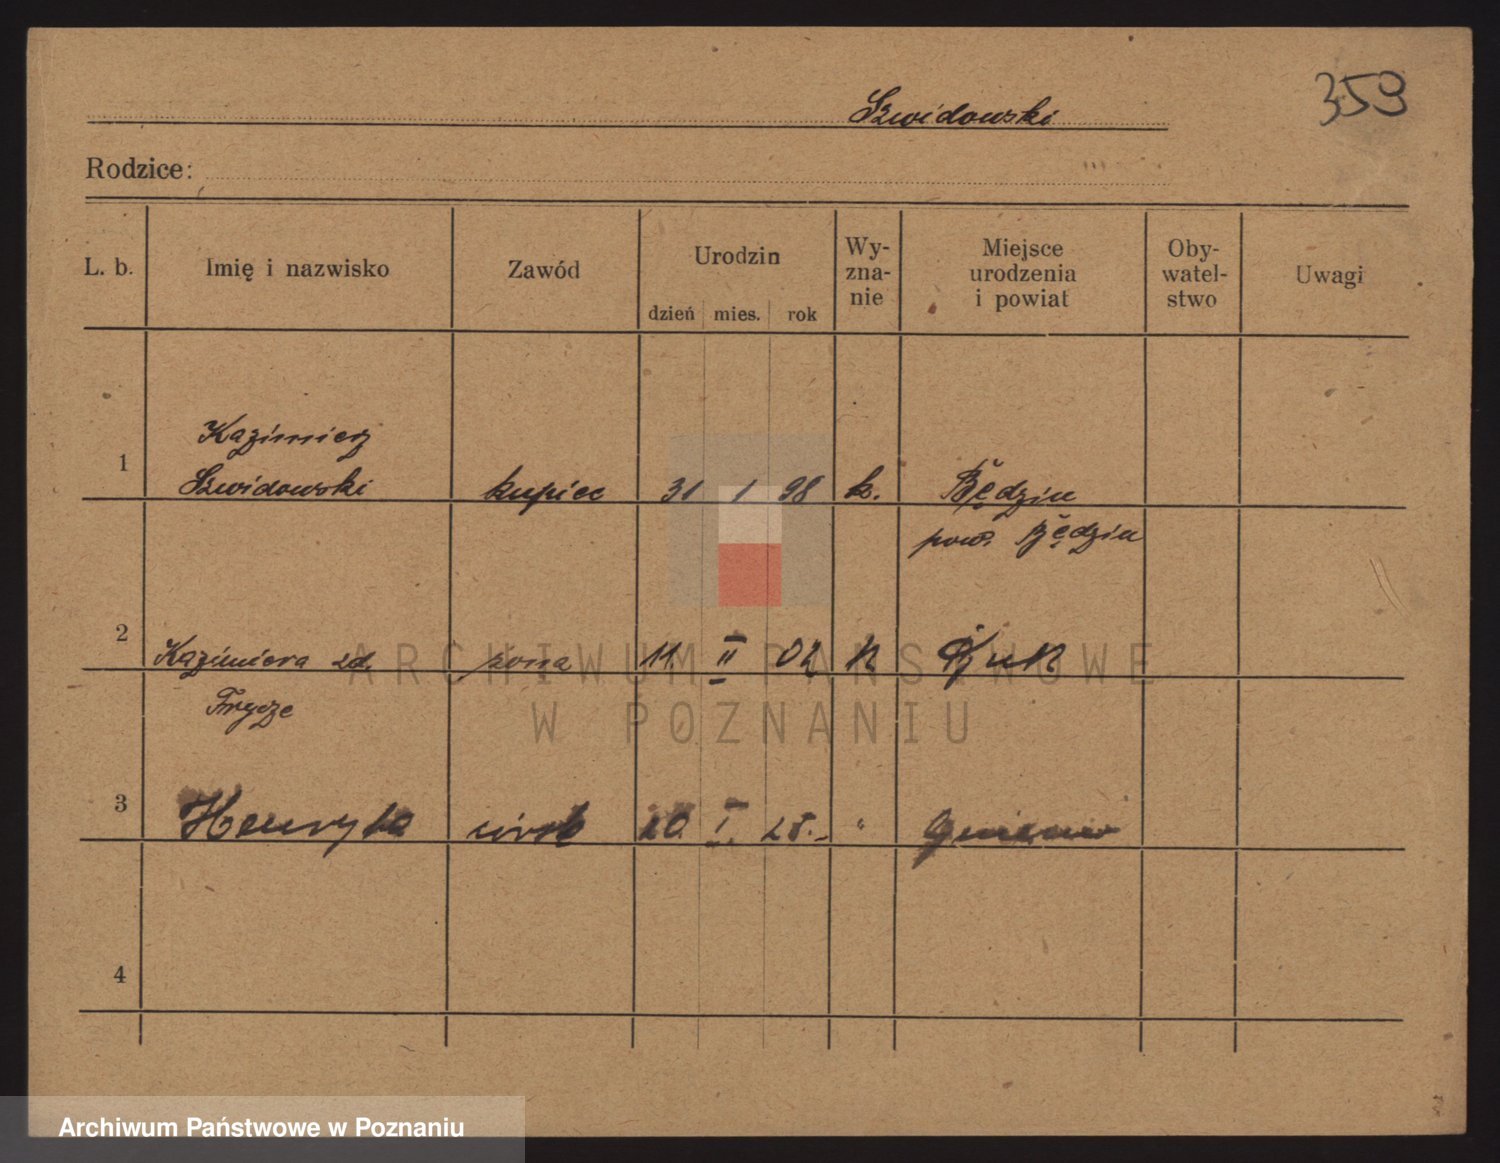 359
Szwidowski
Rodzice:
L. b. Imię i nazwisko Zawód Urodzin dzień mies. rok Wy-zna-nie Miejsce urodzenia i powiat Oby-watel-stwo Uwagi
Kazimierz
1 Szwidowski kupiec 31 1 98 k. Będzin
pow. Będzin
2 Kazimiera zd. żona 11 II 02 k Buk
Frycze
3 Henryka córk 20. I. 25. "
4
ARCHIWUM PAŃSTWOWE
W POZNANIU
Archiwum Państwowe w Poznaniu